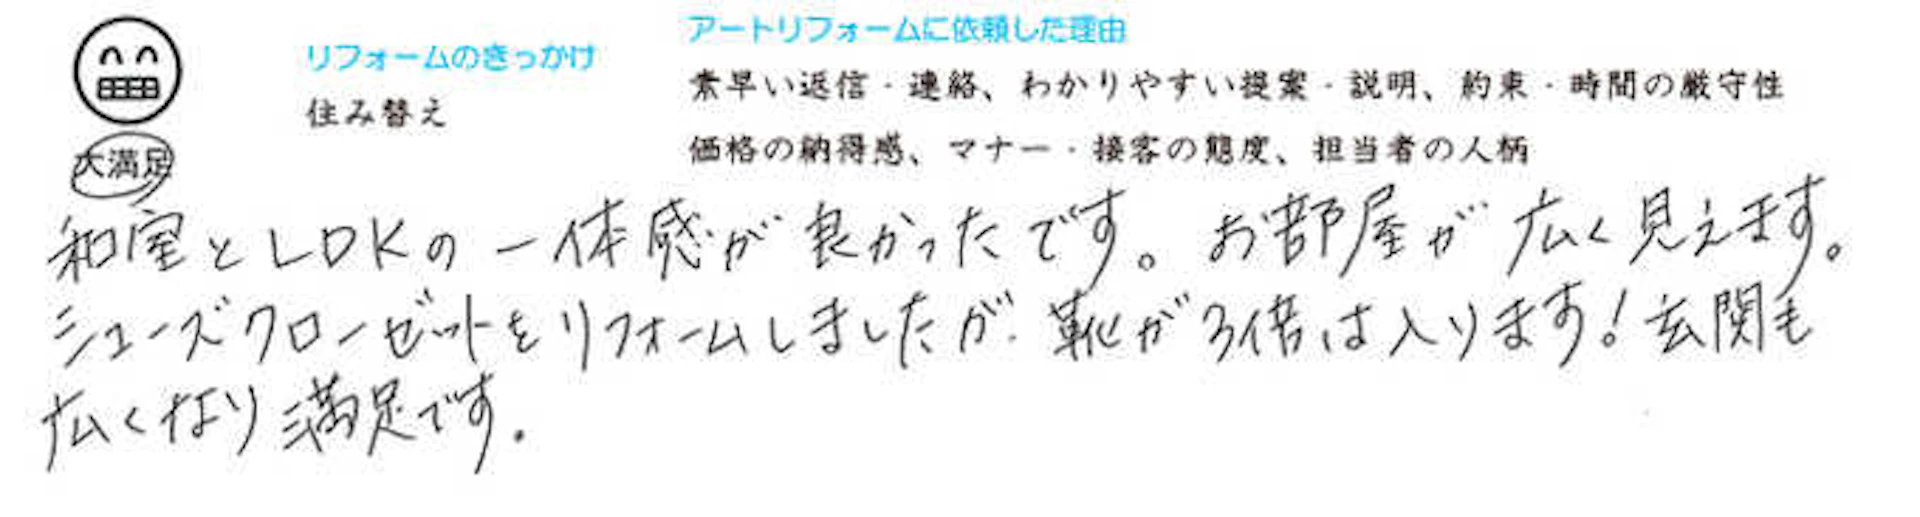 リフォームのきっかけ
住み替え
アートリフォームに依頼した理由
素早い返信・連絡、わかりやすい提案・説明、約束・時間の厳守性
価格の納得感、マナー・接客の態度、担当者の人柄
大満足
和室とLDKの一体感が良かったです。お部屋が広く見えます。
シューズクローゼットをリフォームしましたが、靴が3倍は入ります!玄関も
広くなり満足です.